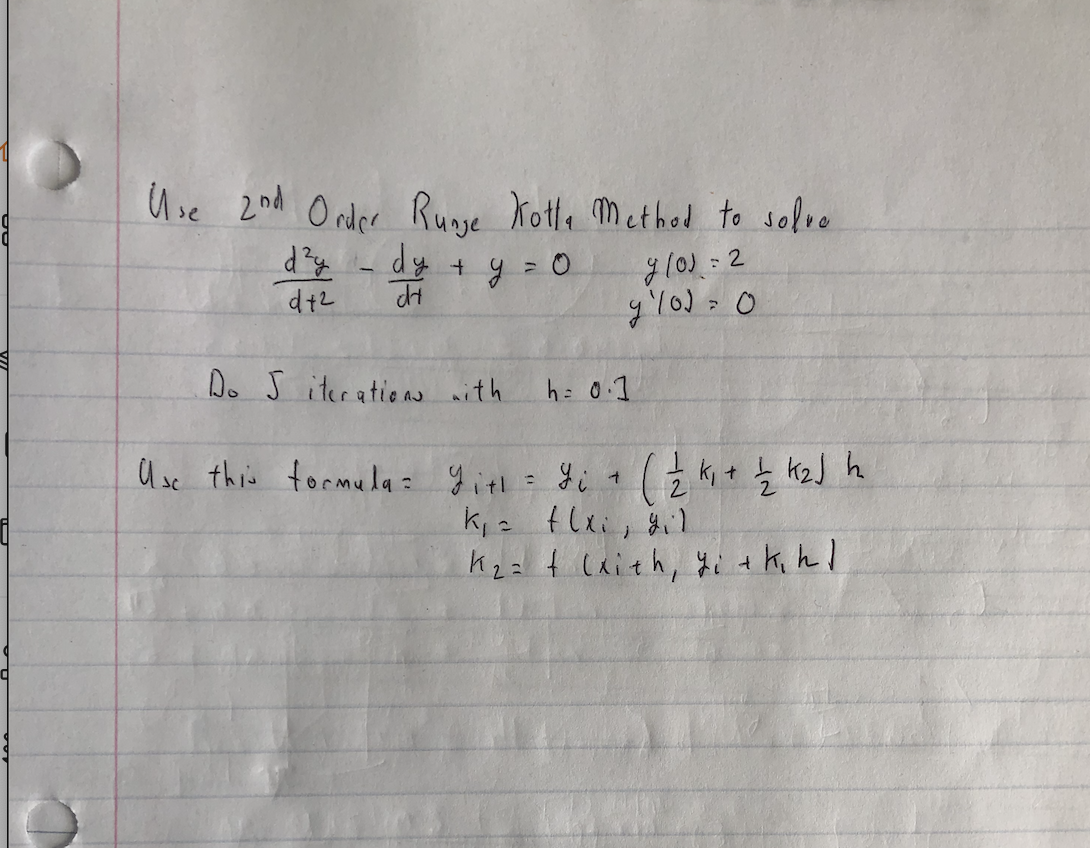 Use 2nd Order Runge Kotta Method to solve
d²y/dt2 - dy/dt + y = 0 y(0) = 2
y'(0) = 0
Do 5 iterations with h = 0.1
Use this formula = yi+1 = yi + (1/2 k1 + 1/2 k2) h
k1 = f(xi, yi)
k2 = f(xi+h, yi + k1h)